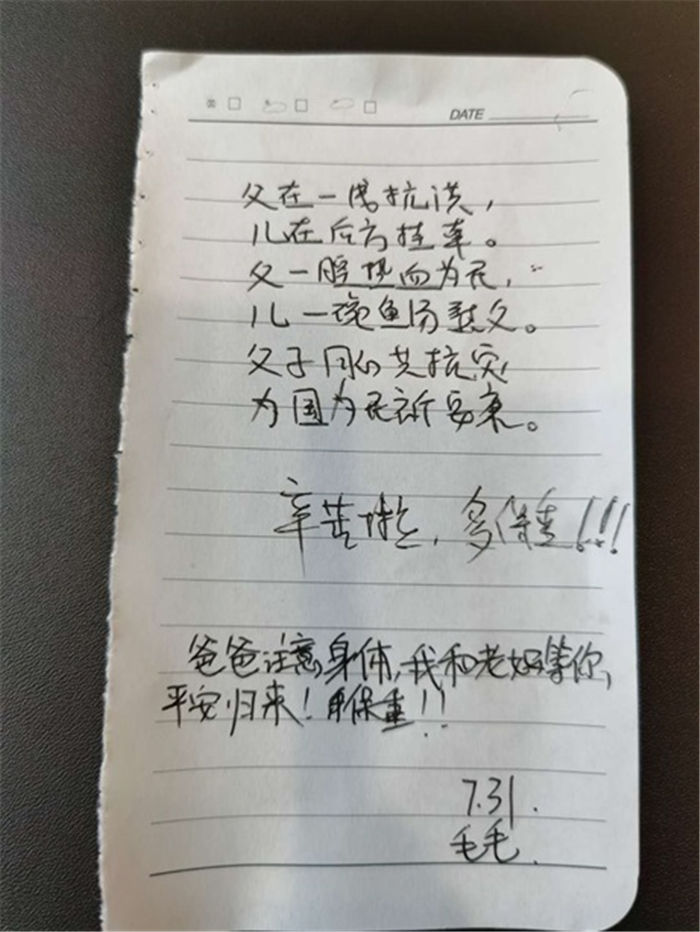 DATE
父在一线抗洪，
儿在后方挂牵。
父一腔热血为民，
儿一碗鱼汤慰父。
父子同心共抗灾，
为国为民祈安康。
辛苦啦，多保重!!!
爸爸注意身体，我和老妈等你，
平安归来！保重！！
7.31.
毛毛.